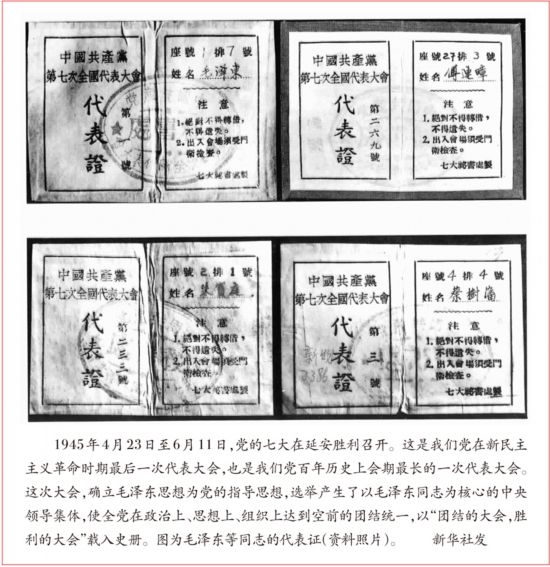 中國共產黨
第七次全國代表大會
代表證
第 號
座號 1 排 7 號
姓名 毛澤東
注意
1.絕對不得轉借，
不得遺失。
2.出入會場須受門
衛檢查。
七大祕書處製
中國共產黨
第七次全國代表大會
代表證
第二六九號
座號27排 3 號
姓名 傅連暲
注意
1.絕對不得轉借，
不得遺失。
2.出入會場須受門
衛檢查。
七大祕書處製
中國共產黨
第七次全國代表大會
代表證
第二三三號
座號 2 排 1 號
姓名
注意
1.絕對不得轉借，
不得遺失。
2.出入會場須受門
衛檢查。
七大祕書處製
中國共產黨
第七次全國代表大會
代表證
第三號
座號 4 排 4 號
姓名 蔡樹藩
注意
1.絕對不得轉借，
不得遺失。
2.出入會場須受門
衛檢查。
七大祕書處製
1945年4月23日至6月11日,党的七大在延安胜利召开。这是我们党在新民主
主义革命时期最后一次代表大会,也是我们党百年历史上会期最长的一次代表大会。
这次大会,确立毛泽东思想为党的指导思想,选举产生了以毛泽东同志为核心的中央
领导集体,使全党在政治上、思想上、组织上达到空前的团结统一,以“团结的大会,胜
利的大会”载入史册。图为毛泽东等同志的代表证(资料照片)。 新华社发